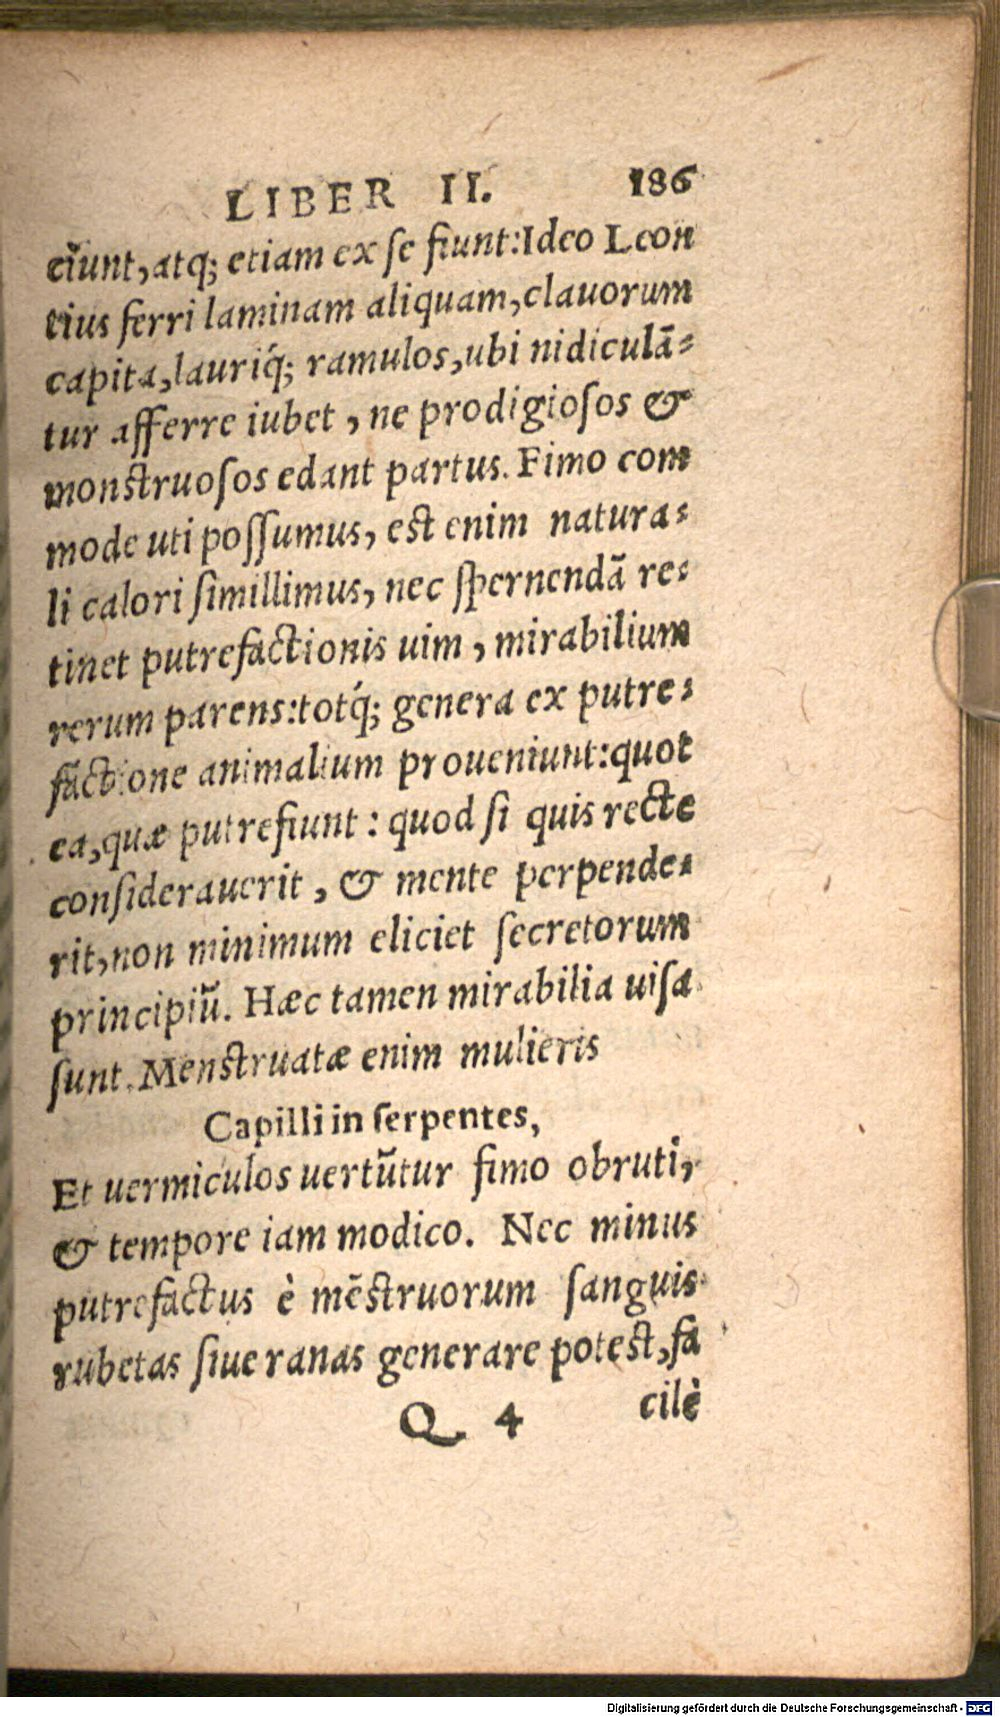 LIBER II. 186
ciunt, atq; etiam ex se fiunt: Ideo Leon
tius ferri laminam aliquam, clauorum
capita, lauriq́; ramulos, ubi nidiculã-
tur afferre iubet, ne prodigiosos &
monstruosos edant partus. Fimo com
mode uti possumus, est enim natura-
li calori simillimus, nec spernendã re-
tinet putrefactionis uim, mirabilium
rerum parens: totq́; genera ex putre-
factione animalium proueniunt: quot
ea, quæ putrefiunt: quod si quis recte
considerauerit, & mente perpende-
rit, non minimum eliciet secretorum
principiũ. Hæc tamen mirabilia uisa
sunt. Menstruatæ enim mulieris
Capilli in serpentes,
Et uermiculos uertũtur fimo obruti,
& tempore iam modico. Nec minus
putrefactus è mẽstruorum sanguis
rubetas siue ranas generare potest, fa
Q 4 cilè
Digitalisierung gefördert durch die Deutsche Forschungsgemeinschaft - DFG